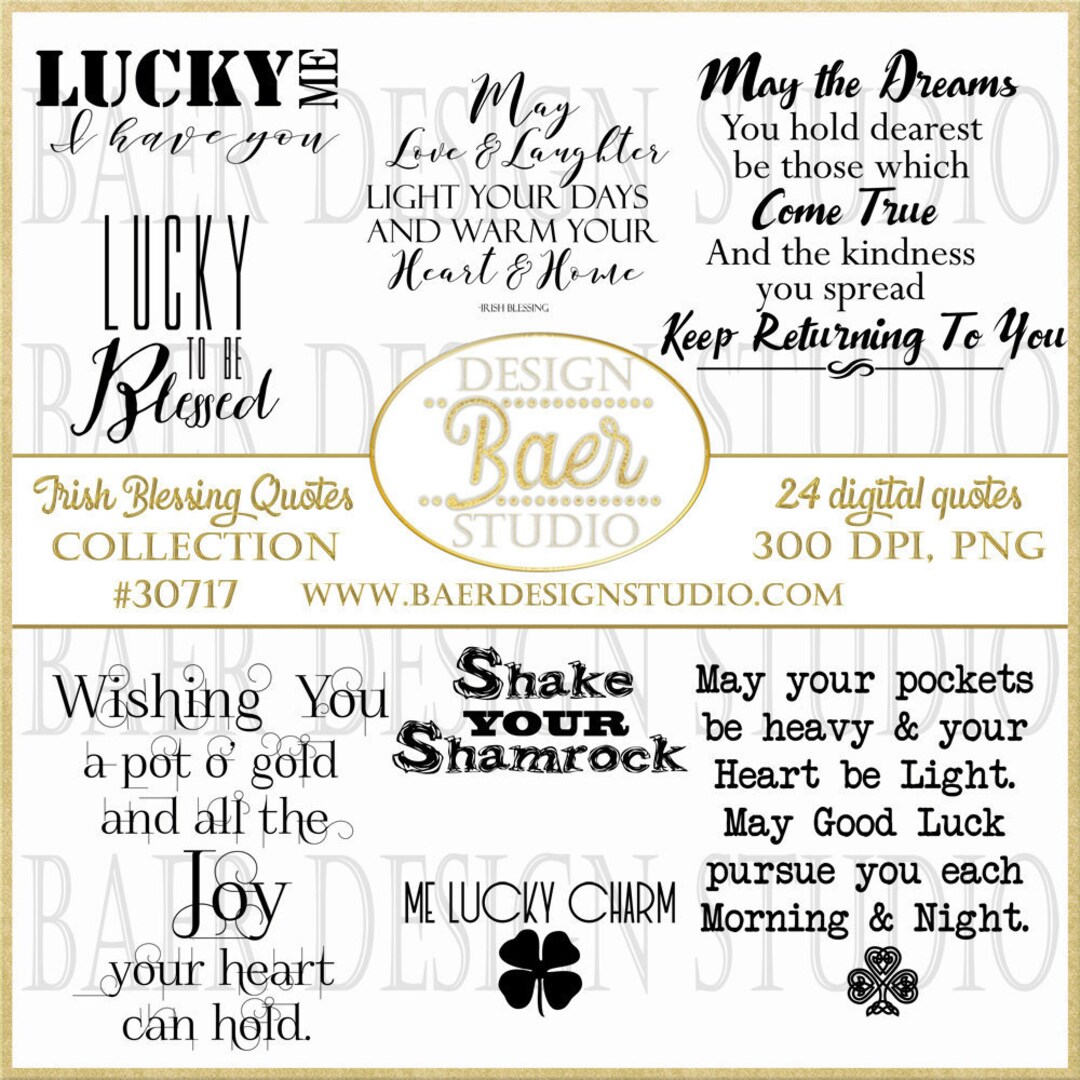 LUCKY ME
I have you
LUCKY
TO BE
Blessed
May
Love & Laughter
LIGHT YOUR DAYS
AND WARM YOUR
Heart & Home
-IRISH BLESSING
May the Dreams
You hold dearest
be those which
Come True
And the kindness
you spread
Keep Returning To You
Irish Blessing Quotes
COLLECTION
#30717
DESIGN
Baer
STUDIO
24 digital quotes
300 DPI, PNG
WWW.BAERDESIGNSTUDIO.COM
Wishing You
a pot o' gold
and all the
Joy
your heart
can hold.
Shake
YOUR
Shamrock
ME LUCKY CHARM
May your pockets
be heavy & your
Heart be Light.
May Good Luck
pursue you each
Morning & Night.
BAER DESIGN STUDIO
BAER DESIGN STUDIO
BAER DESIGN STUDIO
BAER DESIGN STUDIO